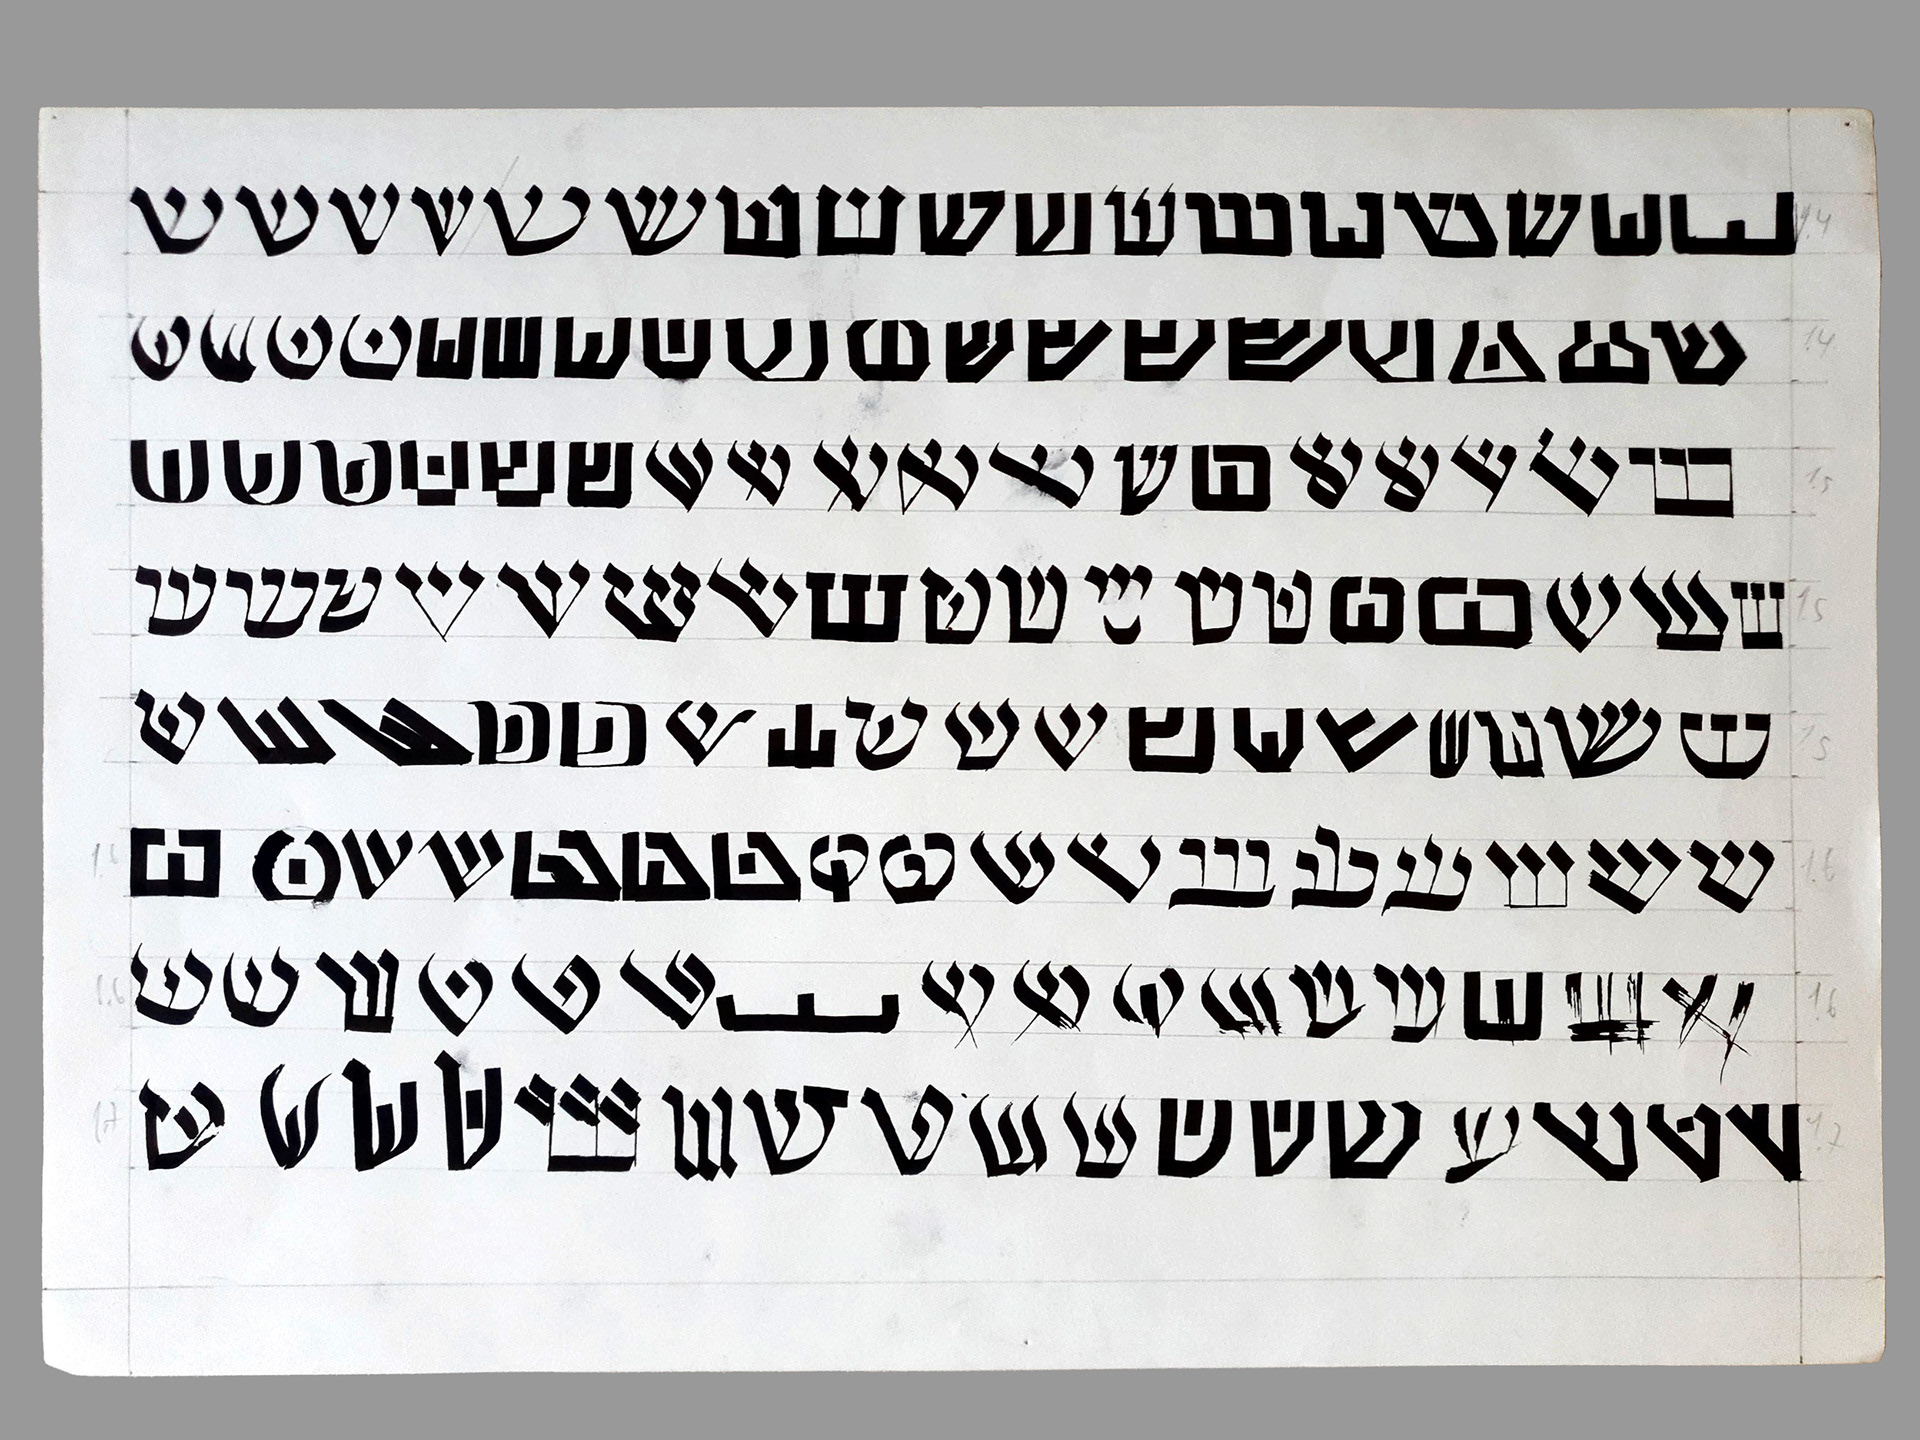 1.4 ש ש ש ש ש ש ש ש ש ש ש ש ש ש ש ש ש
1.4 ש ש ש ש ש ש ש ש ש ש ש ש ש ש ש ש ש ש
1.5 ש ש ש ש ש ש ש ש ש ש ש ש ש ש ש ש ש ש
1.5 ש ש ש ש ש ש ש ש ש ש ש ש ש ש ש ש ש ש
1.5 ש ש ש ש ש ש ש ש ש ש ש ש ש ש ש ש ש
1.6 ש ש ש ש ש ש ש ש ש ש ש ש ש ש ש ש ש 1.6
1.6 ש ש ש ש ש ש ש ש ש ש ש ש ש ש ש ש 1.6
1.7 ש ש ש ש ש ש ש ש ש ש ש ש ש ש ש ש ש 1.7